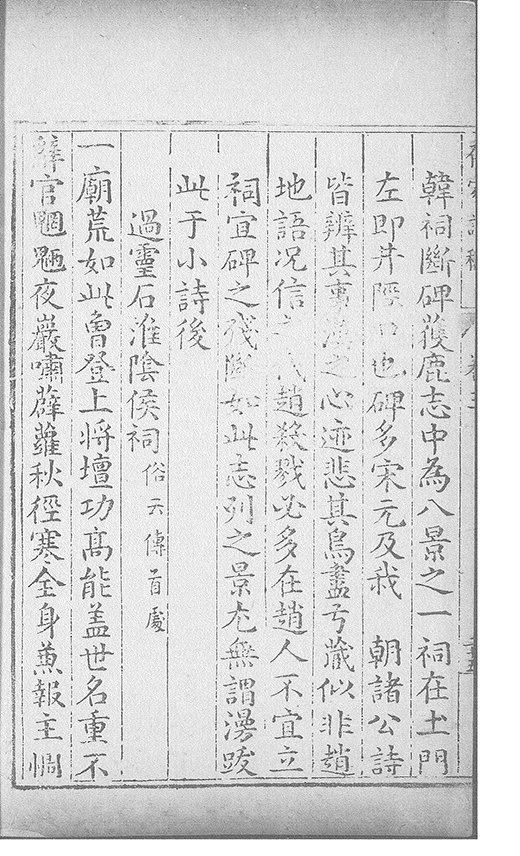 韓祠斷碑獲鹿志中為八景之一祠在土門
左即井陘口也碑多宋元及我　朝諸公詩
皆辨其事漢之心迹悲其鳥盡弓藏似非趙
地語况信之代趙殺戮必多在趙人不宜立
祠宜碑之殘斷如此志列之景尤無謂漫跋
此于小詩後
過靈石淮陰侯祠俗云傳首處
一廟荒如此曾登上將壇功高能蓋世名重不
辭官魍魎夜巖嘯薜蘿秋徑寒全身兼報主惆